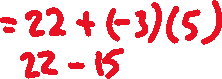 =22+(-3)(5)
22-15